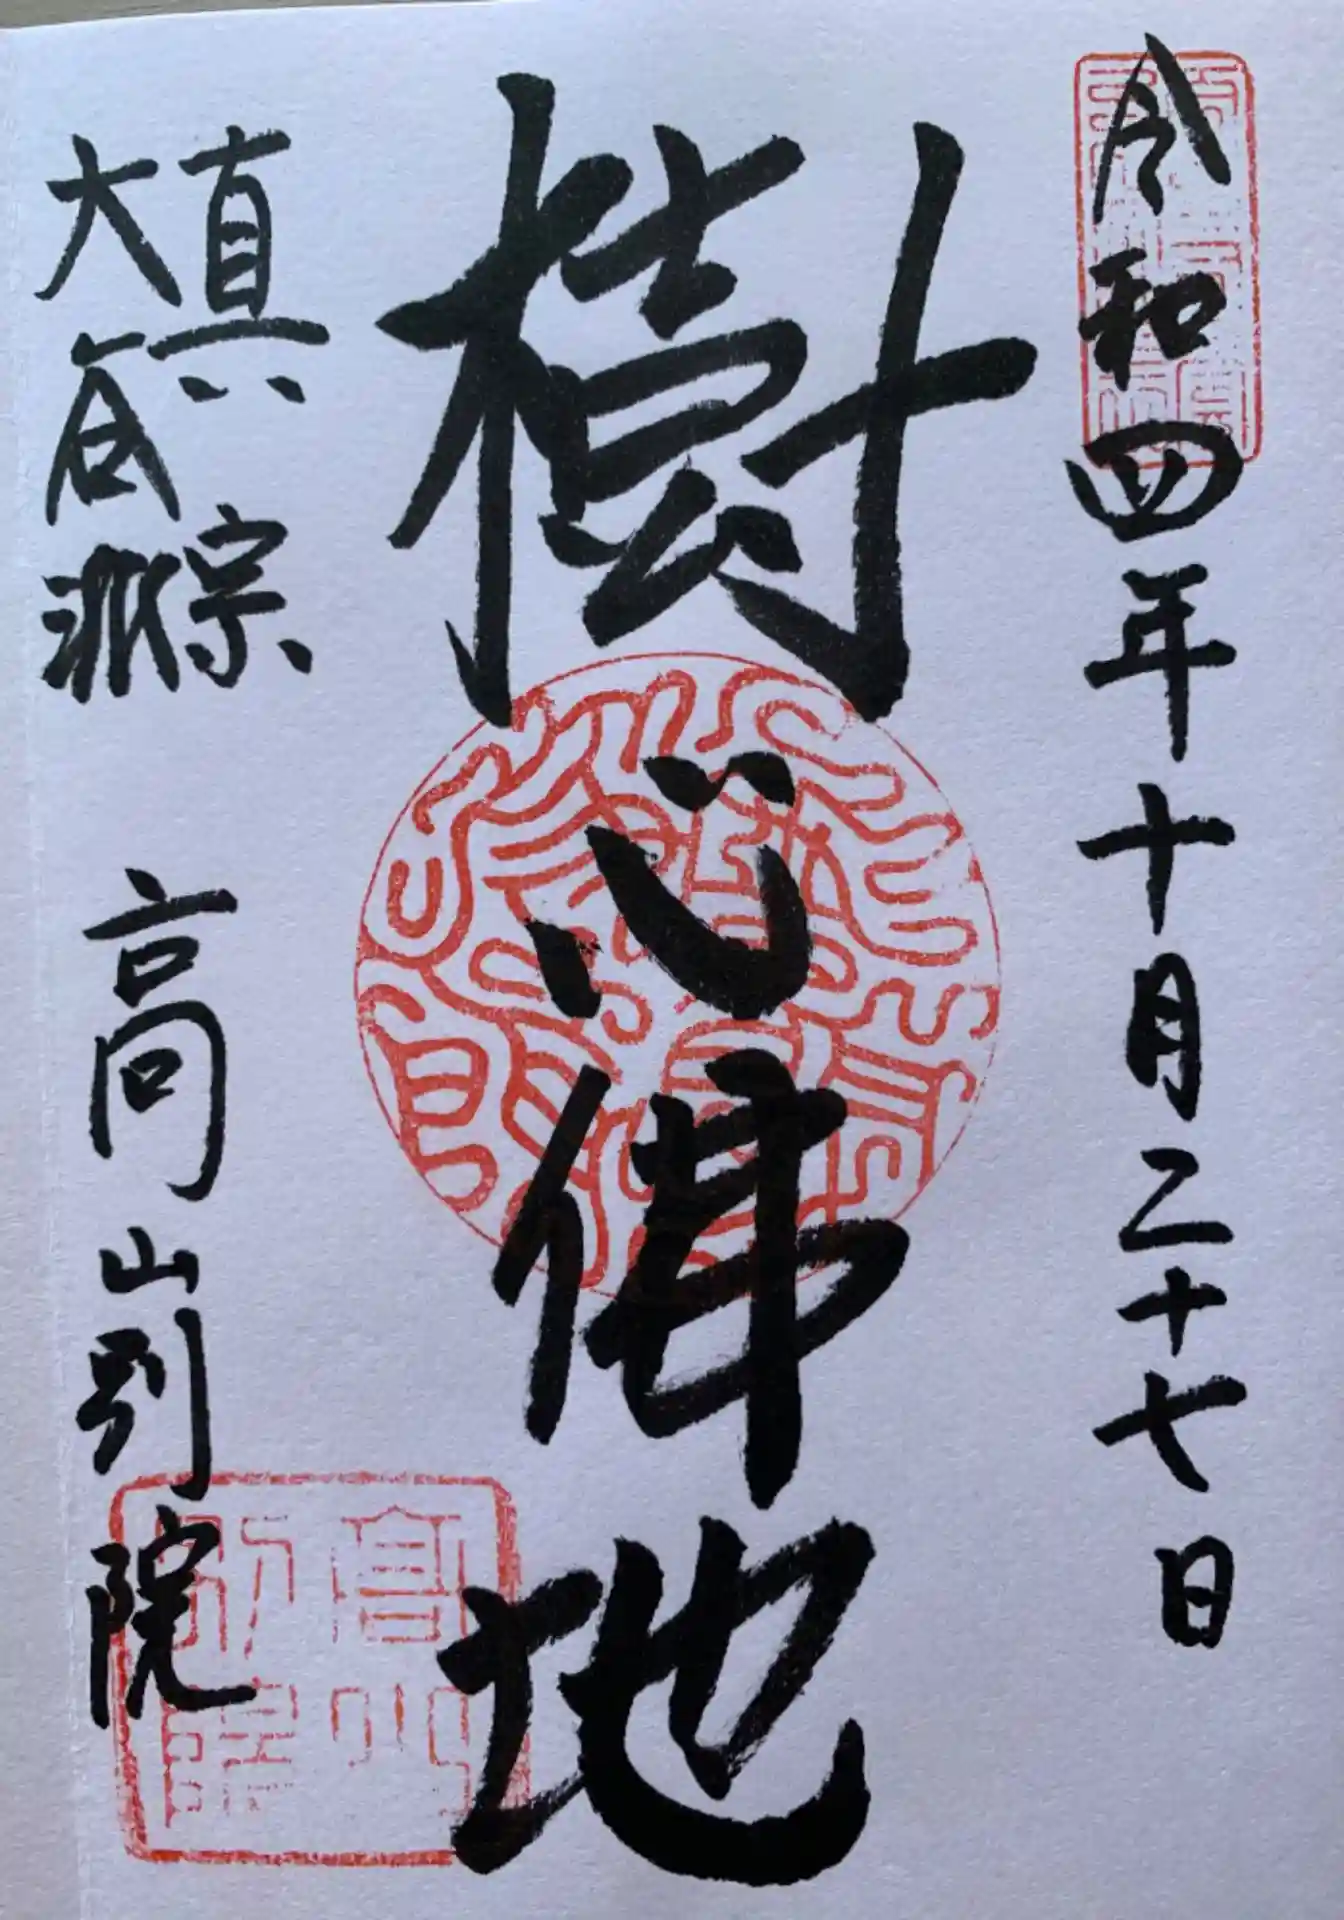 令和四年十月二十七日
樹心佛地
真宗
大谷派
高山別院
高山別院